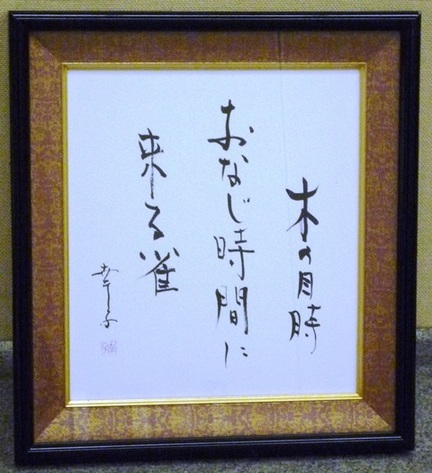 木の目時
おなじ時間に
来る雀
幸子